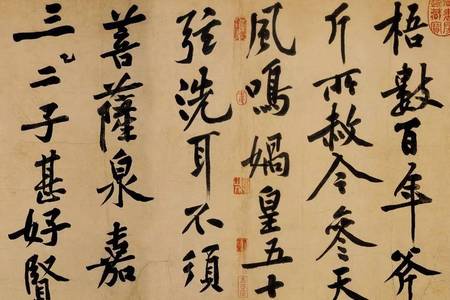 梧數百年斧
斤所赦今參天
風鳴媧皇五十
弦洗耳不須
菩薩泉嘉
三二子甚好賢